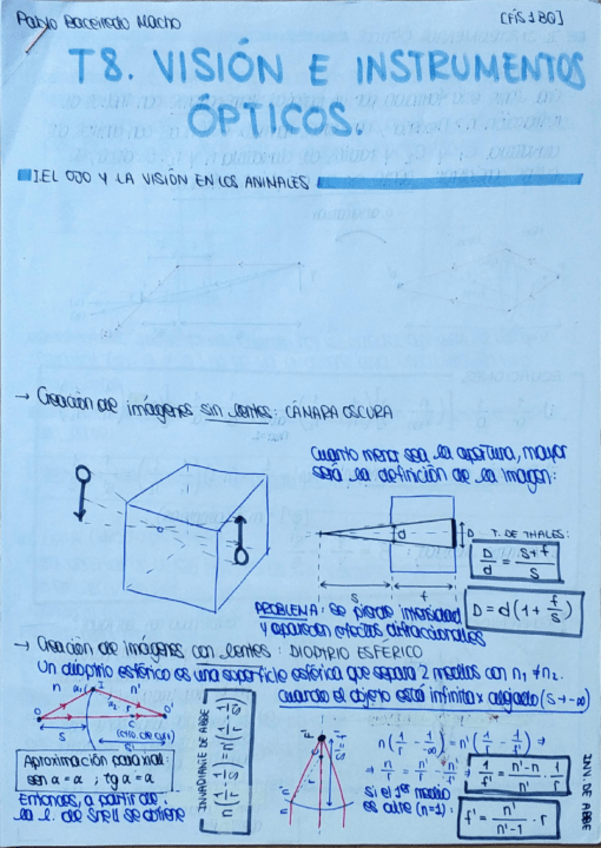 Pablo Bacerredo Macho
[FÍS 1 BQ]
T8. VISIÓN E INSTRUMENTOS
ÓPTICOS.
I. EL OJO Y LA VISIÓN EN LOS ANIMALES
→ Creación de imágenes sin lentes: CÁMARA OSCURA
Cuanto menor sea la apertura, mayor
será la definición de la imagen:
d
D
T. DE THALES:
D/d = (s+f)/s
s
f
D = d(1 + f/s)
PROBLEMA: se pierde intensidad
y aparecen efectos difraccionales
→ Creación de imágenes con lentes: DIOPTRIO ESFÉRICO
Un dioptrio esférico es una superficie esférica que separa 2 medios con n₁ ≠ n₂.
cuando el objeto está infinita× alejado (s→-∞)
n
I
n'
O
C
O'
s
s'
Aproximación paraxial:
sen α = α ; tg α = α
Entonces, a partir de
la l. de Snell se obtiene
INVARIANTE DE ABBE
n(1/r - 1/s) = n'(1/r - 1/s')
F'
s' = f'
r
n
n'
n(1/r - 1/-∞) = n'(1/r - 1/f') ⇒
⇒ n/r = n'/r - n'/f' ⇒
1/f' = (n'-n)/n' · 1/r
si el 1er medio
es aire (n=1):
f' = n'/(n'-1) · r
INV. DE ABBE